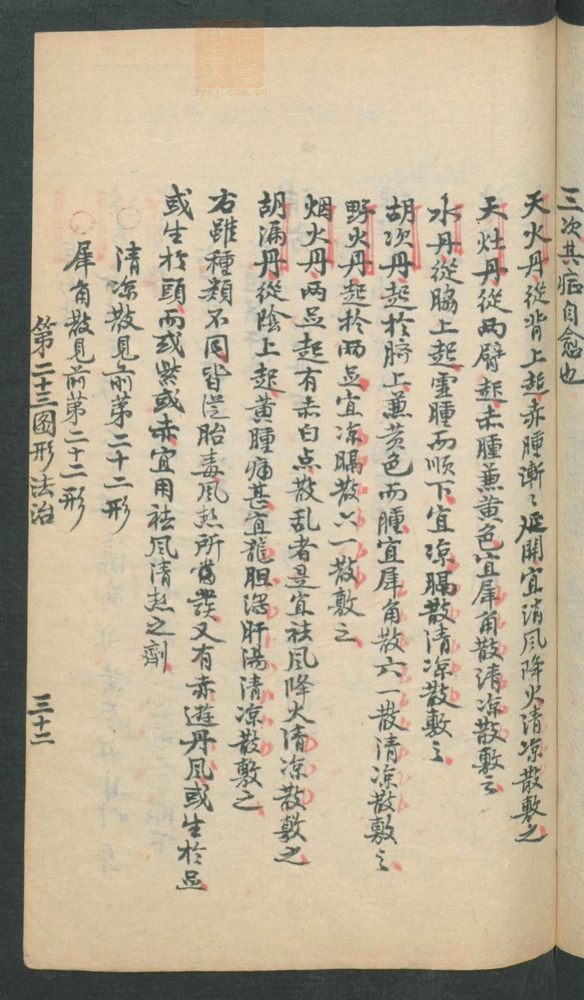 三次其症自愈也
天火丹從背上起赤腫漸漸延開宜清風降火清凉散敷之
天灶丹從兩臂起赤腫兼黄色宜犀角散清凉散敷之
水丹從脇上起虚腫而順下宜凉膈散清凉散敷之
胡次丹起於臍上兼黄色而腫宜犀角散六一散清凉散敷之
野火丹起於兩足宜凉膈散六一散敷之
烟火丹兩足起有赤白点散乱者是宜祛风降火清凉散敷之
胡漏丹從陰上起黄腫痛甚宜龍胆瀉肝湯清凉散敷之
右雖種類不同皆從胎毒风热所發又有赤遊丹风或生於足
或生於頭而或紫或赤宜用祛风清热之劑
清凉散見前第二十二形
犀角散見前第二十二形
第二十三圖形法治
三十二